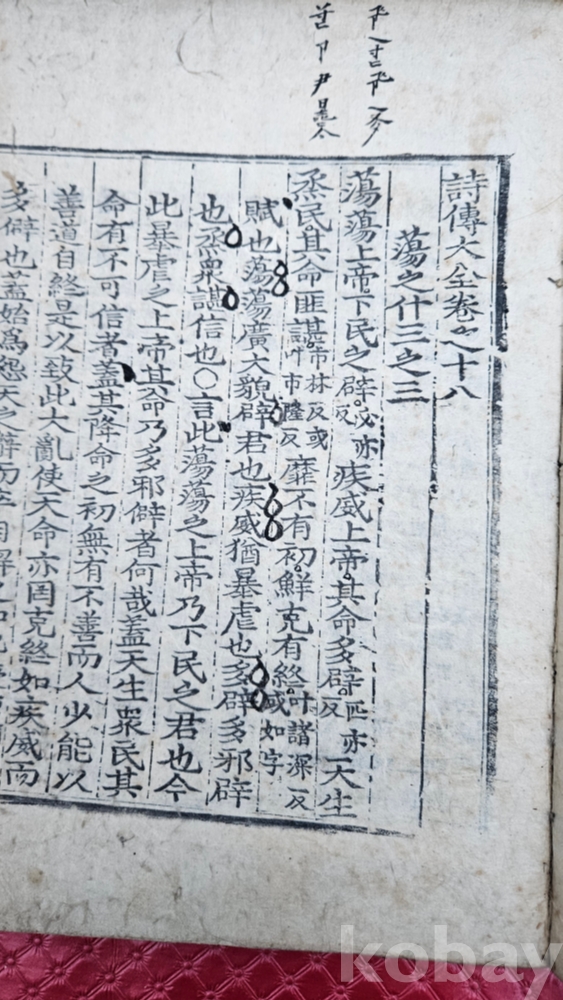 詩傳大全卷之十八
蕩之什三之三
蕩蕩上帝下民之辟必亦反疾威上帝其命多辟匹亦反天生
烝民其命匪諶市林反或叶市隆反靡不有初鮮克有終叶諸深反或如字
賦也蕩蕩廣大貌辟君也疾威猶暴虐也多辟多邪辟
也烝衆諶信也○言此蕩蕩之上帝乃下民之君也今
此暴虐之上帝其命乃多邪僻者何哉蓋天生衆民其
命有不可信者蓋其降命之初無有不善而人少能以
善道自終是以致此大亂使天命亦罔克終如疾威而
多僻也蓋始爲怨天之辭而
kobay